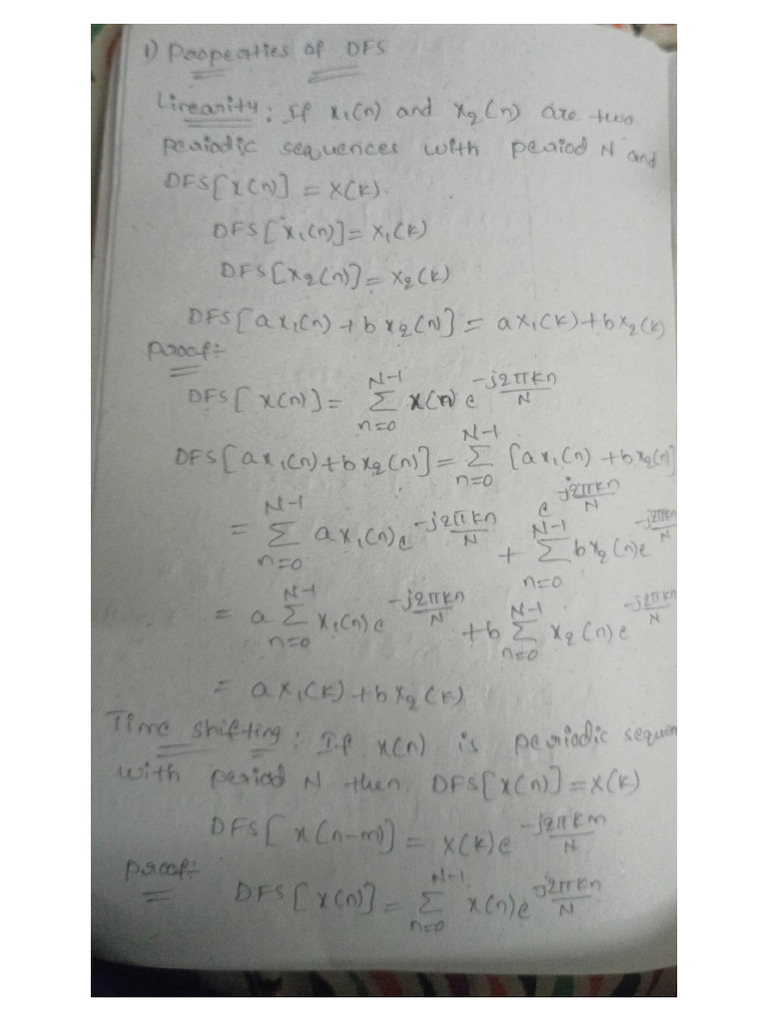 1) Properties of DFS
Linearity: If x₁(n) and x₂(n) are two
periodic sequences with period N and
DFS[x(n)] = X(k).
DFS[x₁(n)] = X₁(k)
DFS[x₂(n)] = X₂(k)
DFS[a x₁(n) + b x₂(n)] = a X₁(k) + b X₂(k)
Proof:-
DFS[x(n)] = Σ_{n=0}^{N-1} x(n) e^{-j2πkn/N}
DFS[a x₁(n) + b x₂(n)] = Σ_{n=0}^{N-1} [a x₁(n) + b x₂(n)]
e^{-j2πkn/N}
= Σ_{n=0}^{N-1} a x₁(n) e^{-j2πkn/N} + Σ_{n=0}^{N-1} b x₂(n) e^{-j2πkn/N}
= a Σ_{n=0}^{N-1} x₁(n) e^{-j2πkn/N} + b Σ_{n=0}^{N-1} x₂(n) e^{-j2πkn/N}
= a X₁(k) + b X₂(k)
Time shifting: If x(n) is periodic sequen
with period N then DFS[x(n)] = X(k)
DFS[x(n-m)] = X(k) e^{-j2πkm/N}
Proof:-
DFS[x(n)] = Σ_{n=0}^{N-1} x(n) e^{j2πkn/N}